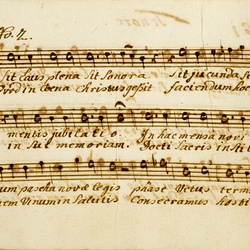 No. 7.
Sit laus plena sit Sonora sit jucunda s
Quod in Coena Christus gessit faciendum hoc
mentis jubilatio. In hac mensa novi
in sui memoriam. Docti Sacris insti
um pascha novae legis phase Vetus term
nem Vinum in Salutis Consecramus hosti